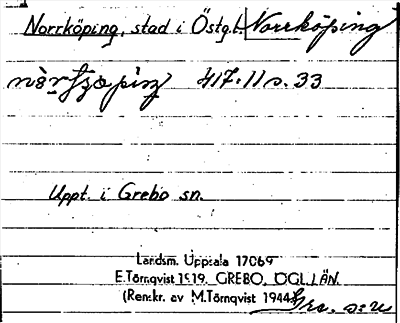 Norrköping, stad i Östg.l. Norrköping
417:11 s. 33
Uppt. i Grebo sn.
Landsm. Uppsala 17069
E.Törnqvist 1919. GREBO, ÖGL.LÄN.
(Renskr. av M.Törnqvist 1944)